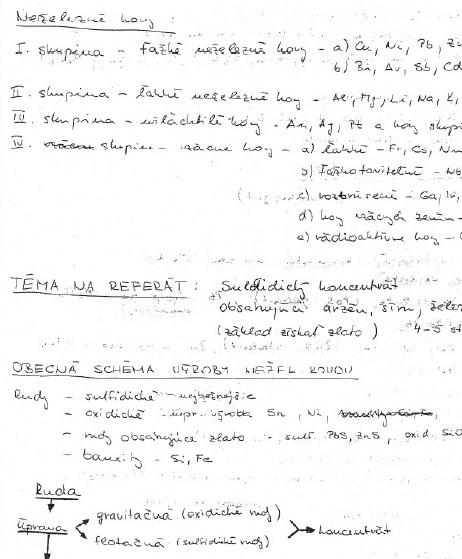 Neželezné kovy :
I. skupina – ťažké neželezné kovy – a) Cu, Ni, Pb, Zn
b) Bi, As, Sb, Cd
II. skupina – ľahké neželezné kovy – Al, Mg, Li, Na, K,
III. skupina – ušľachtilé kovy – Au, Ag, Pt a kovy skupi
IV. skupina – vzácne kovy – a) ľahké – Fr, Cs,
b) ťažkotaviteľné – Nb
c) rozptýlené – Ga, In,
d) kovy vzácnych zemín –
e) rádioaktívne kovy –
TÉMA NA REFERÁT : Sulfidický koncentrát
obsahujúci arzén, síru, želez
(základ získať zlato) 4-5 st
OBECNÁ SCHÉMA VÝROBY NEŽEL. KOVOV
Rudy – sulfidické – najbežnejšie
– oxidické – npr. výroba Sn, Ni,
– rudy obsahujúce zlato – sulf. PbS, ZnS, oxid. SiO
– bauxity – Si, Fe
Ruda
Úprava gravitačná (oxidické rudy)
flotačná (sulfidické rudy) koncentrát